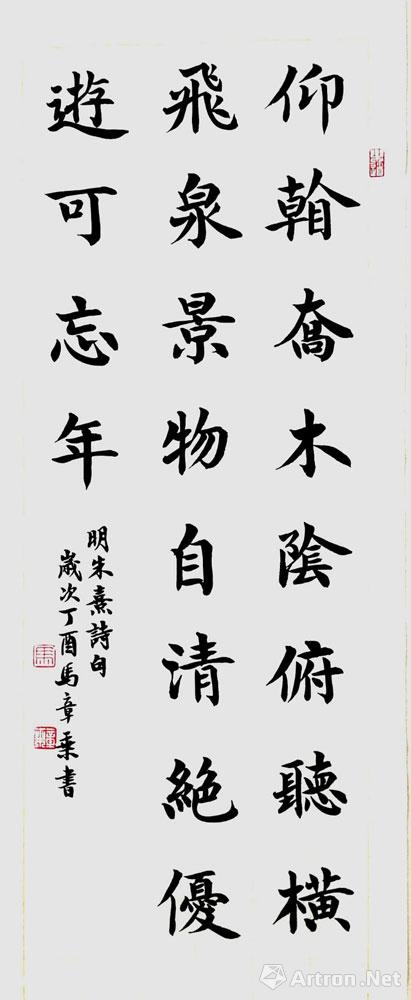 仰翰喬木陰俯聽橫
飛泉景物自清絕優
遊可忘年
明朱熹詩句
歲次丁酉馬章乘書
Artron.Net